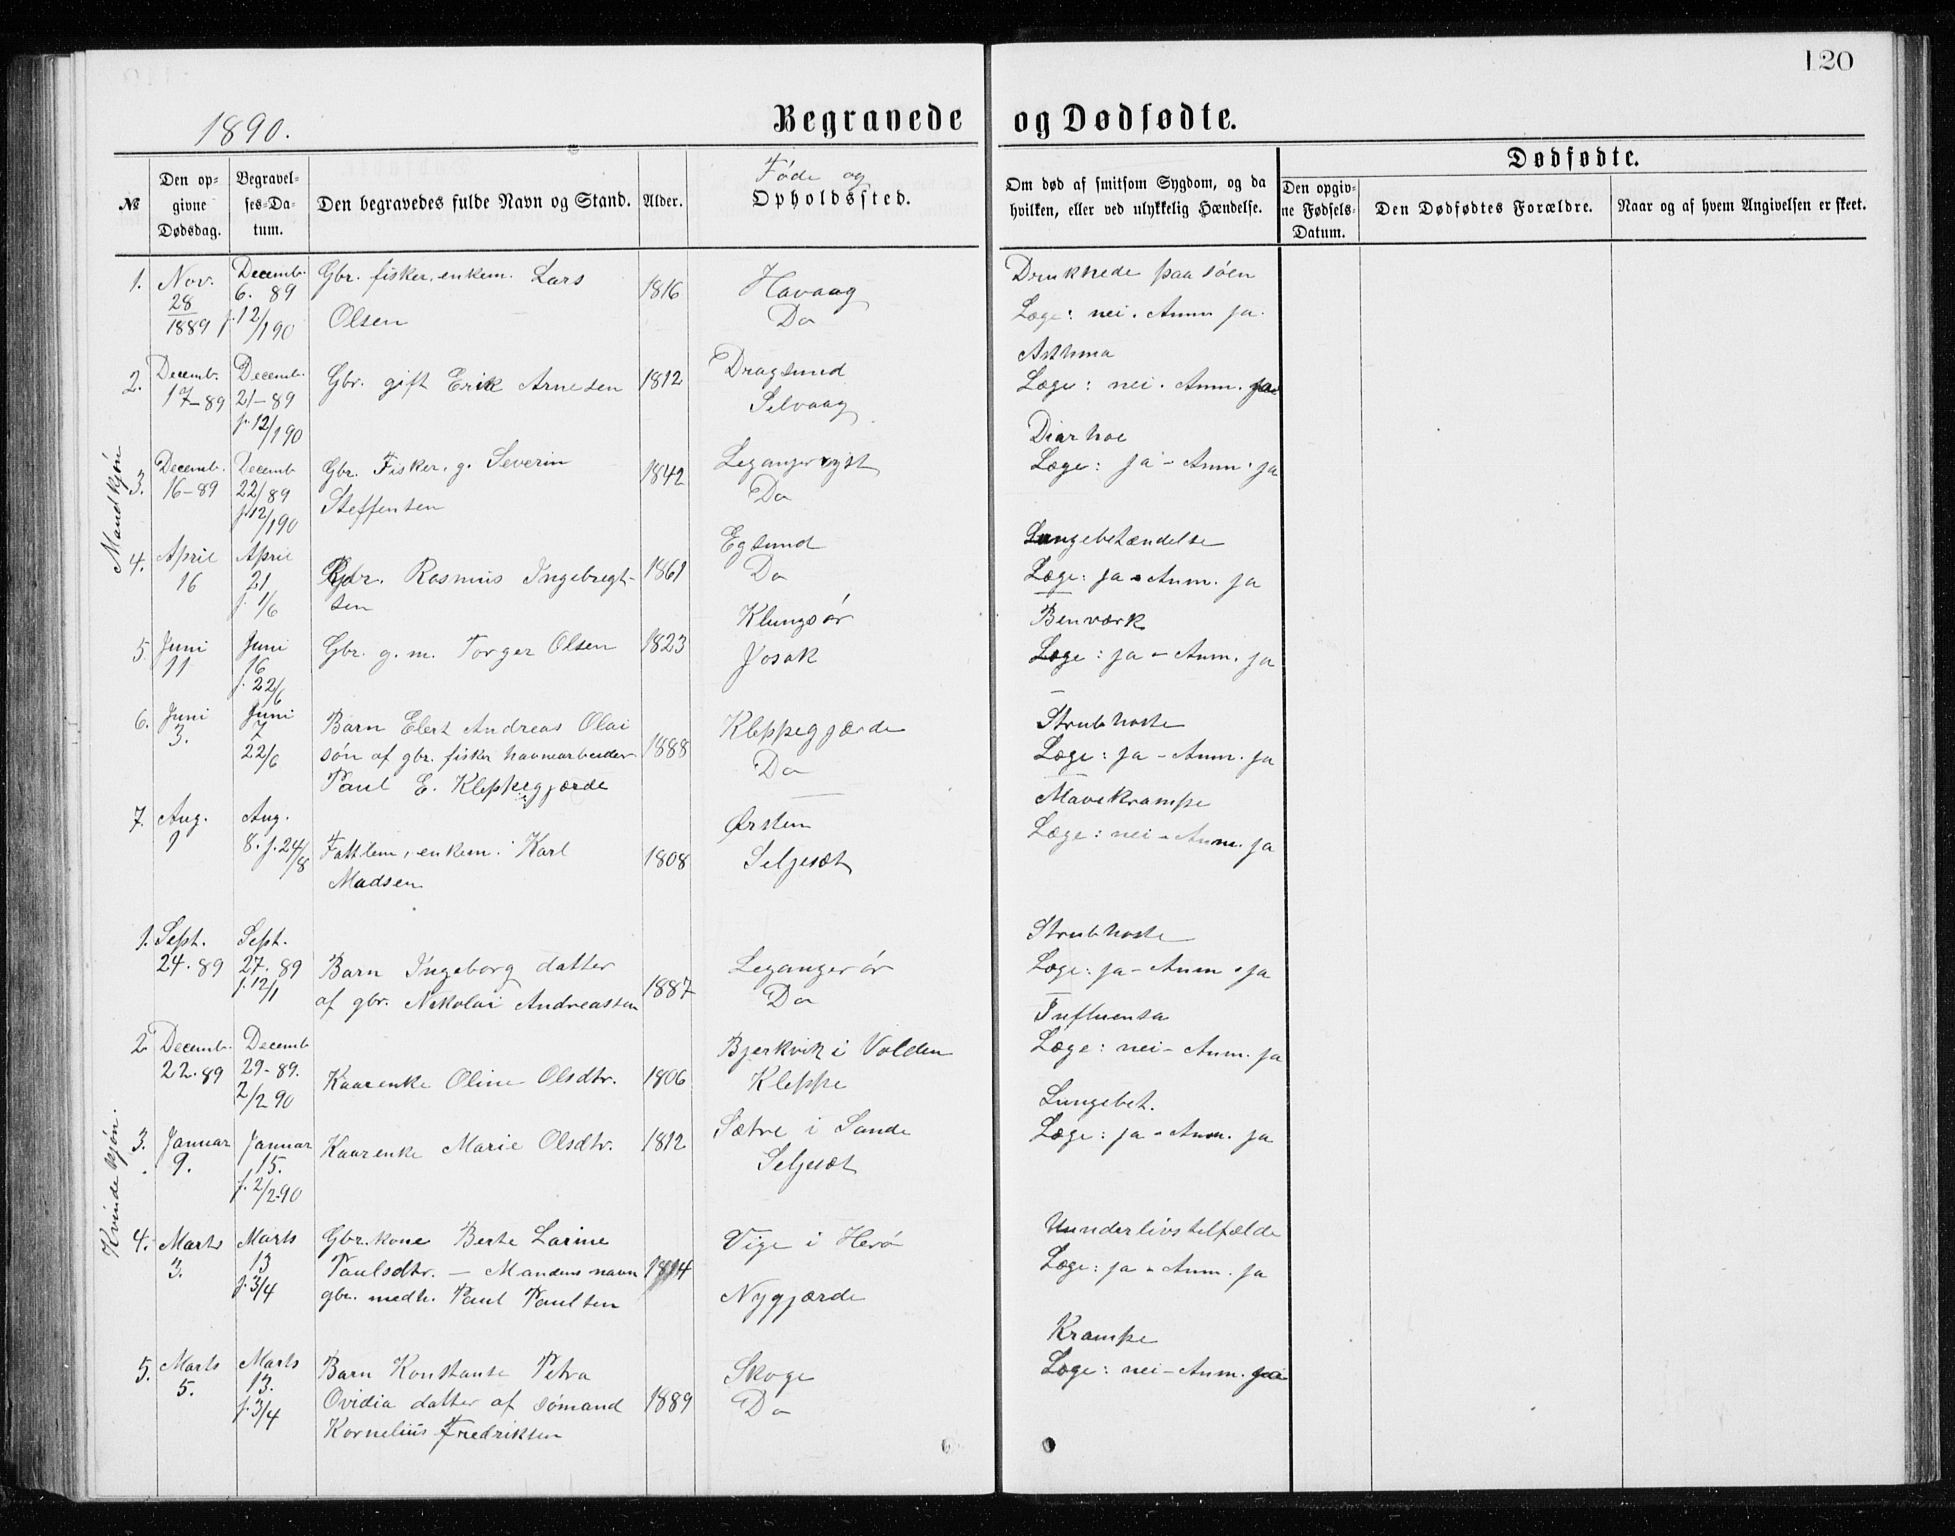 120
1890.
Begravede og Dødfødte.
№
Den opgivne Dødsdag.
Begravelses-Datum.
Den begravedes fulde Navn og Stand.
Alder.
Føde og
Opholdssted.
Om død af smitsom Sygdom, og da
hvilken, eller ved ulykkelig Hændelse.
Dødfødte.
Den opgivne Fødsels-Datum.
Den Dødfødtes Forældre.
Naar og af hvem Angivelsen er skeet.
Mandkjøn
1. Nov. 28 1889
Decemb. 6. 89 f. 12/1 90
Gbr. fisker, enkem. Lars
Olsen
1816
Havaag
Do
Druknede paa søen
Læge: nei. Anm. ja.
2. Decemb. 17-89
Decemb. 21-89 f. 12/1 90
Gbr. gift Erik Arnesen
1812
Dragsund
Selvaag
Asthma
Læge: nei. Anm. ja
3. Decemb. 16-89
Decemb 22/89 f. 12/1 90
Gbr. Fisker. g. Severin
Steffensen
1842
Leganger
Do
Diarhoe
Læge: ja - Anm. ja
4. April 16
April 21 f. 1/6
Gbr. Rasmus Ingebregt-
sen
1861
Egsund
Do
Lungebetændelse
Læge: ja - Anm. ja
5. Juni 11
Juni 16 f. 22/6
Gbr. g. m. Torger Olsen
1823
Klungsør
Josok
Benværk
Læge: ja - Anm. ja
6. Juni 3.
Juni 7 22/6
Barn Elert Andreas Olai
søn af gbr. fisker havnearbeider
Paul E. Kleppegjærde
1888
Kleppegjærde
Do
Strubhoste
Læge: ja - Anm. ja
7. Aug. 1
Aug. 8. f. 24/8
Fattlem, enkem. Karl
Madsen
1808
Ørsten
Seljesæt
Mavekrampe
Læge: nei - Anm. ja
Kvindekjøn.
1. Sept. 24. 89
Sept. 27. 89 f. 12/1
Barn Ingeborg datter
af gbr. Nikolai Andreassen
1887
Leangerør
Do
Strubhoste
Læge: ja - Anm. ja
2 Decemb. 22. 89
Decemb 29-89. 2/2 90
Kaarenke Oline Olsdtr.
1806
Bjerkvik i Volden
Kleppe
Influensa
Læge: nei - Anm. ja
3. Januar 9.
Januar 15. f. 2/2-90
Kaarenke Marie Olsdtr.
1812
Sætre i Sande
Seljesæt
Lungebet.
Læge: ja - Anm. ja
4. Marts 3.
Marts 13 f. 3/4
Gbr. kone Berte Larine
Paulsdtr. - Mandens navn
gbr. medh. Paul Paulsen
1814
Vige i Herø
Nygjærde
Underlivstilfælde
Læge: ja - Anm. ja
5. Marts 5.
Marts 13. f. 3/4
Barn Konstanse Petra
Ovidia datter af sømand
Kornelius Fredriksen
1889
Skoge
Do
Krampe
Læge: nei - Anm. ja